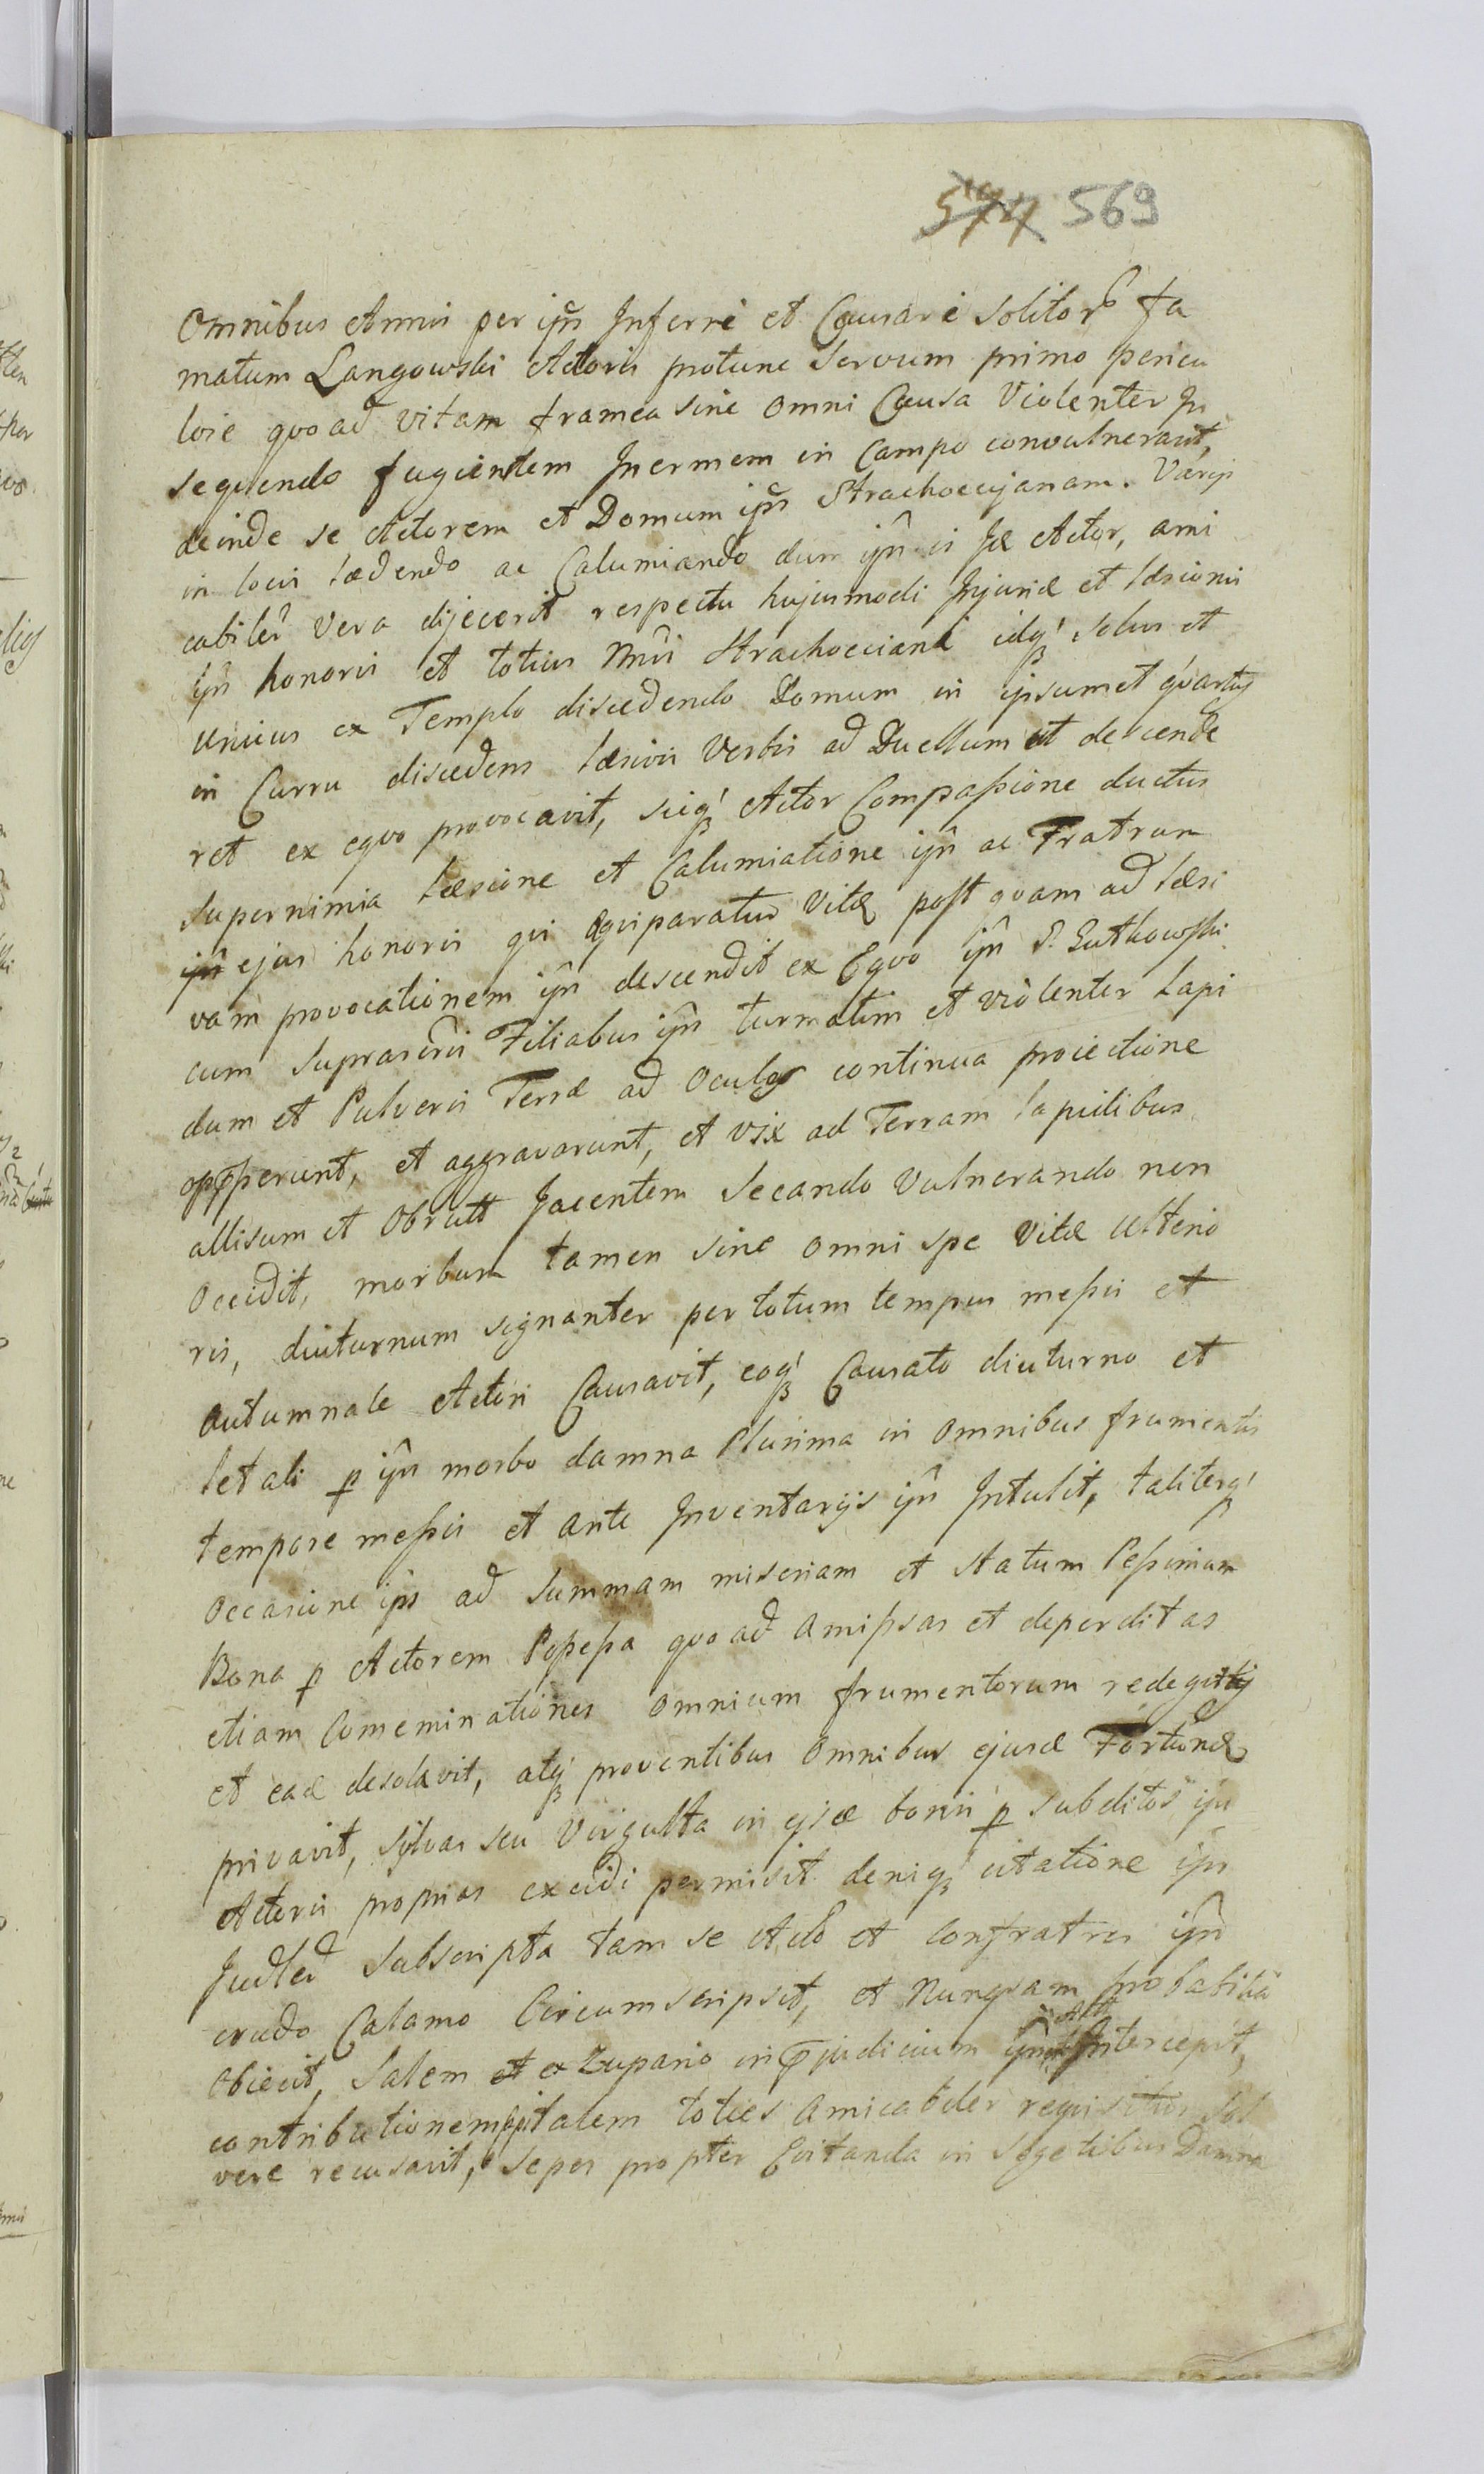 574 569
Omnibus Annis per ipn̄ Inferri et Causari solitor fa
matum Langowski Actoris protunc Servum primo pericu
lose quo ad vitam framea sine omni Causa Violenter In
sequendo fugientem Inermem in Campo convulnerarit,
deinde se Actorem et Domum ipn̄ Strachoccijanam. Varijs
in locis lædendo ac Calumiando dum ipn̄ is Idē Actor, ami
cabiler Vera dijecerit respectu hujusmodi Injuriæ et læsionis
ipn̄ honoris et totius Strachocciana idq solus et
unicus ex Templo discedendo Domum in ipsummet quartus
in Curru discedens læsivis Verbis ad Duellum ut descende
ret ex equo provocavit, sicq Actor Compassione ductus
supernimia læsione et Calumiatione ipn̄ ac Fratrum
ipn̄ ejus honoris qui æquiparatur vitæ post quam ad læsi
vam provocationem ipn̄ descendit ex Equo ipn̄ P. Lutkowski
cum suprascris Filiabus ipn̄ turmatim et violenter lapi
dum et Pulveris Terræ ad oculos continua proiectione
oppperunt, et aggravarunt, et vix ad Terram lapidibus
allisum et Obrutt Jacentem Secando Vulnerando non
Occidit, morbum tamen sine omni spe vitæ ulterio
ris, diuturnum signanter per totum tempus messis et
autumnale Actori Causavit, eoq Causato diuturno et
letali p ipn̄ morbo damna Plurima in omnibus frumentis
tempore messis et ante Inventarijs ipn̄ Intulit, taliterq
occasione ips ad summam miseriam et statum Pessimum
Bona p Actorem Possessa quo ad amissas et deperditas
etiam Comeminationes omnium frumentorum redegit
et eadē desolavit, atq proventibus omnibus ejusdē Fortunæ
privavit, sylvas seu Virgulta in ejsdē bonis p subditos ipn̄
Actoris proprias excidi permisit deniq citatione ipn̄
Judlēr subscripta tam se Actō et Confratres ipn̄
crudo Calamo Circumscripsit, et Nunquam probabilia
obiecit, Salem et ex Zupario in p̄judicium ipn̄ Intercepit,
contributionem capitalem toties amicabiler requisitus sol
vere recusavit, sepes propter Evitanda in segetibus Damna